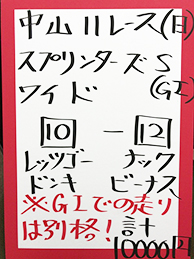 中山11レース(日)
スプリンターズS
ワイド (GI)
10 - 12
レッツゴー ナック
ドンキ ビーナス
※GIでの走り
は別格! 計
10000円